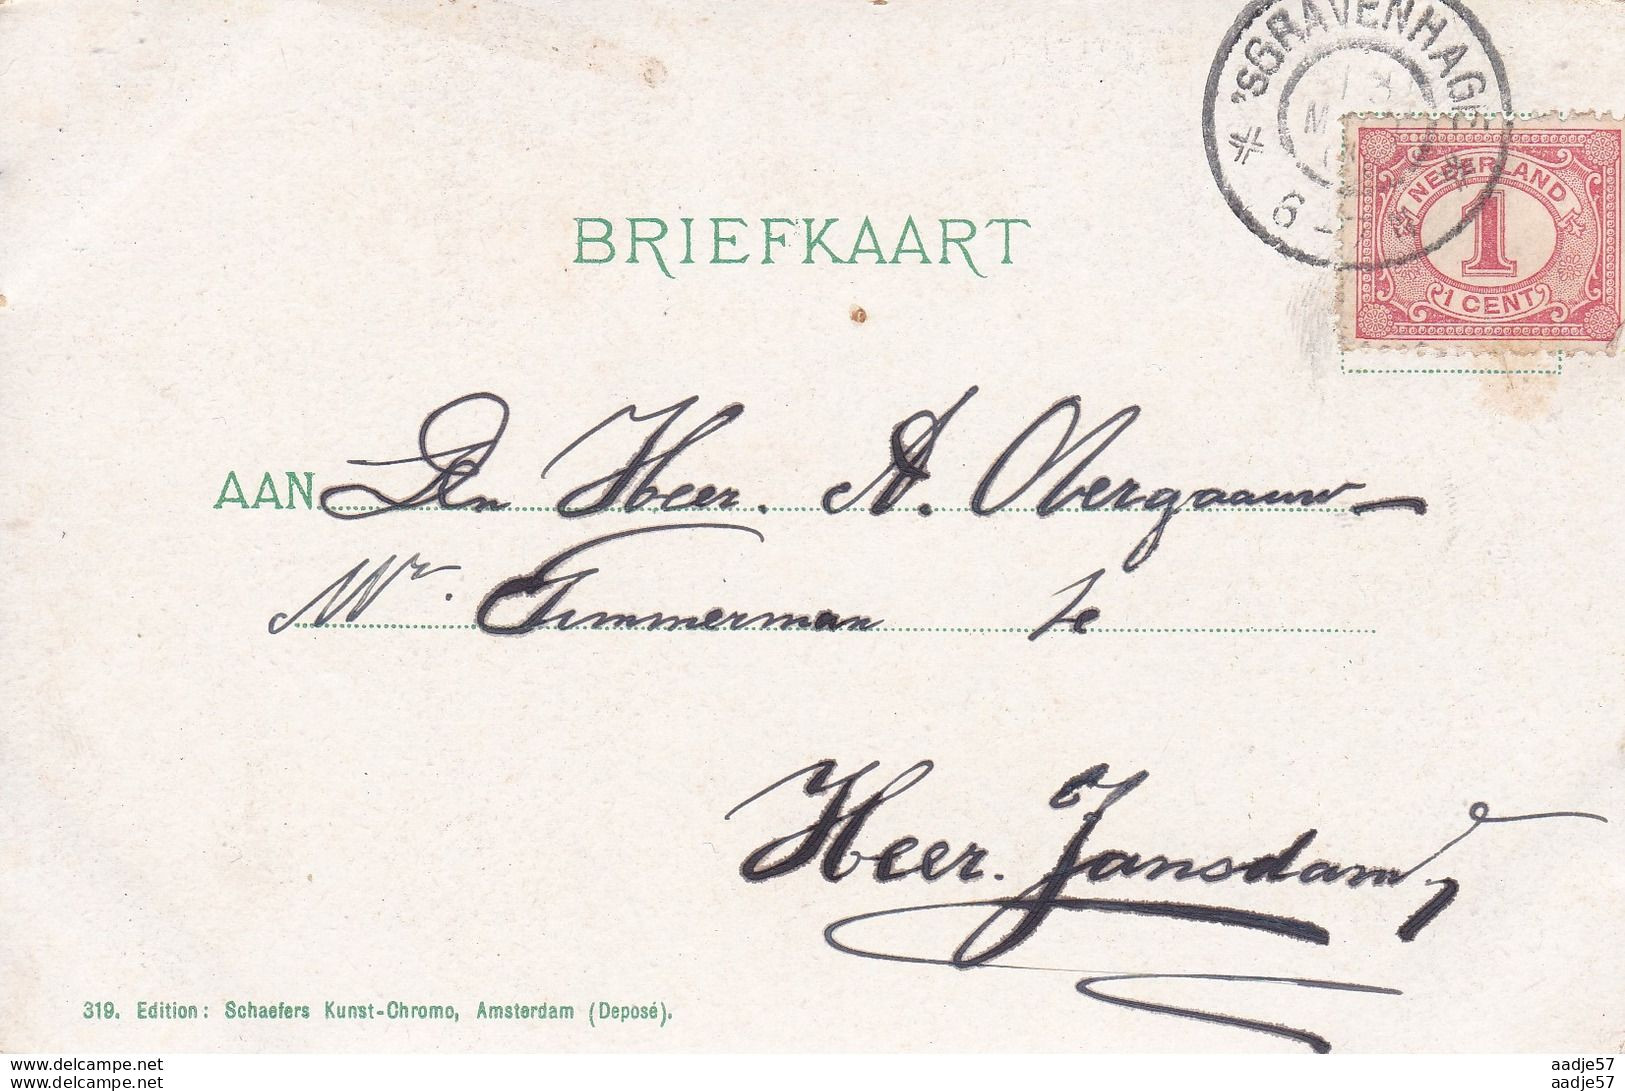 'SGRAVENHAGE
NEDERLAND
1
1 CENT
BRIEFKAART
AAN Den Heer. A. Obergaauw
Mr. Timmerman te
Heer. Jansdam
319. Edition: Schaefers Kunst-Chromo, Amsterdam (Deposé).
www.delcampe.net aadje57
www.delcampe.net aadje57